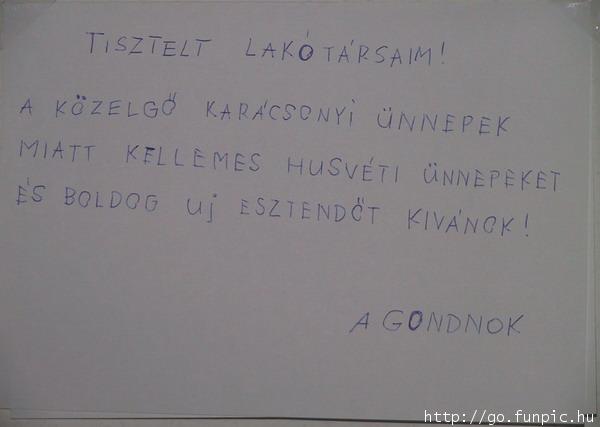 TISZTELT LAKÓTÁRSAIM!
A KÖZELGŐ KARÁCSONYI ÜNNEPEK
MIATT KELLEMES HUSVÉTI ÜNNEPEKET
ÉS BOLDOG Uj ESZTENDŐT KIVÁNOK!
A GONDNOK
http://go.funpic.hu